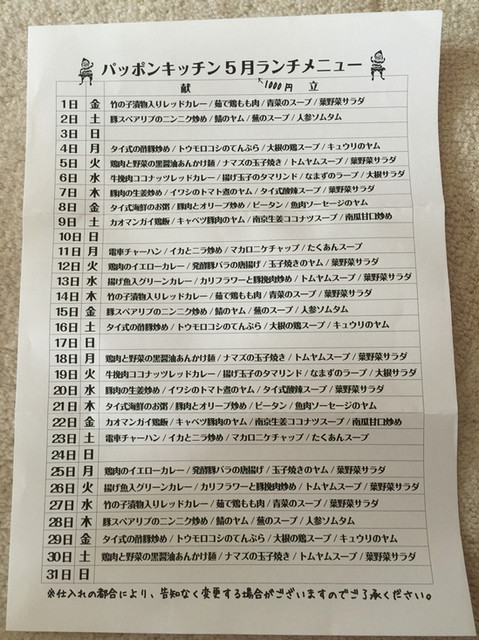 パッポンキッチン5月ランチメニュー
献 1000円 立
1日 金 竹の子漬物入りレッドカレー / 茹で鶏もも肉 / 青菜のスープ / 葉野菜サラダ
2日 土 豚スペアリブのニンニク炒め / 鯖のヤム / 蕪のスープ / 人参ソムタム
3日 日
4日 月 タイ式の酢豚炒め / トウモロコシのてんぷら / 大根の鶏スープ / キュウリのヤム
5日 火 鶏肉と野菜の黒醤油あんかけ麺 / ナマズの玉子焼き / トムヤムスープ / 葉野菜サラダ
6日 水 牛挽肉ココナッツレッドカレー / 揚げ玉子のタマリンド / なまずのラープ / 大根サラダ
7日 木 豚肉の生姜炒め / イワシのトマト煮のヤム / タイ式酸辣スープ / 葉野菜サラダ
8日 金 タイ式海鮮のお粥 / 豚肉とオリーブ炒め / ピータン / 魚肉ソーセージのヤム
9日 土 カオマンガイ鶏飯 / キャベツ豚肉のヤム / 南京生姜ココナツスープ / 南瓜甘口炒め
10日 日
11日 月 電車チャーハン / イカとニラ炒め / マカロニケチャップ / たくあんスープ
12日 火 鶏肉のイエローカレー / 発酵豚バラの唐揚げ / 玉子焼きのヤム / 葉野菜サラダ
13日 水 揚げ魚入グリーンカレー / カリフラワーと豚挽肉炒め / トムヤムスープ / 葉野菜サラダ
14日 木 竹の子漬物入りレッドカレー / 茹で鶏もも肉 / 青菜のスープ / 葉野菜サラダ
15日 金 豚スペアリブのニンニク炒め / 鯖のヤム / 蕪のスープ / 人参ソムタム
16日 土 タイ式の酢豚炒め / トウモロコシのてんぷら / 大根の鶏スープ / キュウリのヤム
17日 日
18日 月 鶏肉と野菜の黒醤油あんかけ麺 / ナマズの玉子焼き / トムヤムスープ / 葉野菜サラダ
19日 火 牛挽肉ココナッツレッドカレー / 揚げ玉子のタマリンド / なまずのラープ / 大根サラダ
20日 水 豚肉の生姜炒め / イワシのトマト煮のヤム / タイ式酸辣スープ / 葉野菜サラダ
21日 木 タイ式海鮮のお粥 / 豚肉とオリーブ炒め / ピータン / 魚肉ソーセージのヤム
22日 金 カオマンガイ鶏飯 / キャベツ豚肉のヤム / 南京生姜ココナツスープ / 南瓜甘口炒め
23日 土 電車チャーハン / イカとニラ炒め / マカロニケチャップ / たくあんスープ
24日 日
25日 月 鶏肉のイエローカレー / 発酵豚バラの唐揚げ / 玉子焼きのヤム / 葉野菜サラダ
26日 火 揚げ魚入グリーンカレー / カリフラワーと豚挽肉炒め / トムヤムスープ / 葉野菜サラダ
27日 水 竹の子漬物入りレッドカレー / 茹で鶏もも肉 / 青菜のスープ / 葉野菜サラダ
28日 木 豚スペアリブのニンニク炒め / 鯖のヤム / 蕪のスープ / 人参ソムタム
29日 金 タイ式の酢豚炒め / トウモロコシのてんぷら / 大根の鶏スープ / キュウリのヤム
30日 土 鶏肉と野菜の黒醤油あんかけ麺 / ナマズの玉子焼き / トムヤムスープ / 葉野菜サラダ
31日 日
※仕入れの都合により、告知なく変更する場合がございますのでご了承ください。